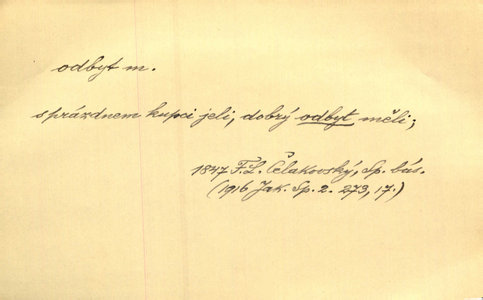 odbyt m.
s prázdnem kupci jeli, dobrý odbyt měli;
1847 F. L. Čelakovský, Sp. bás.
(1916 Jak. Sp. 2. 273, 17.)